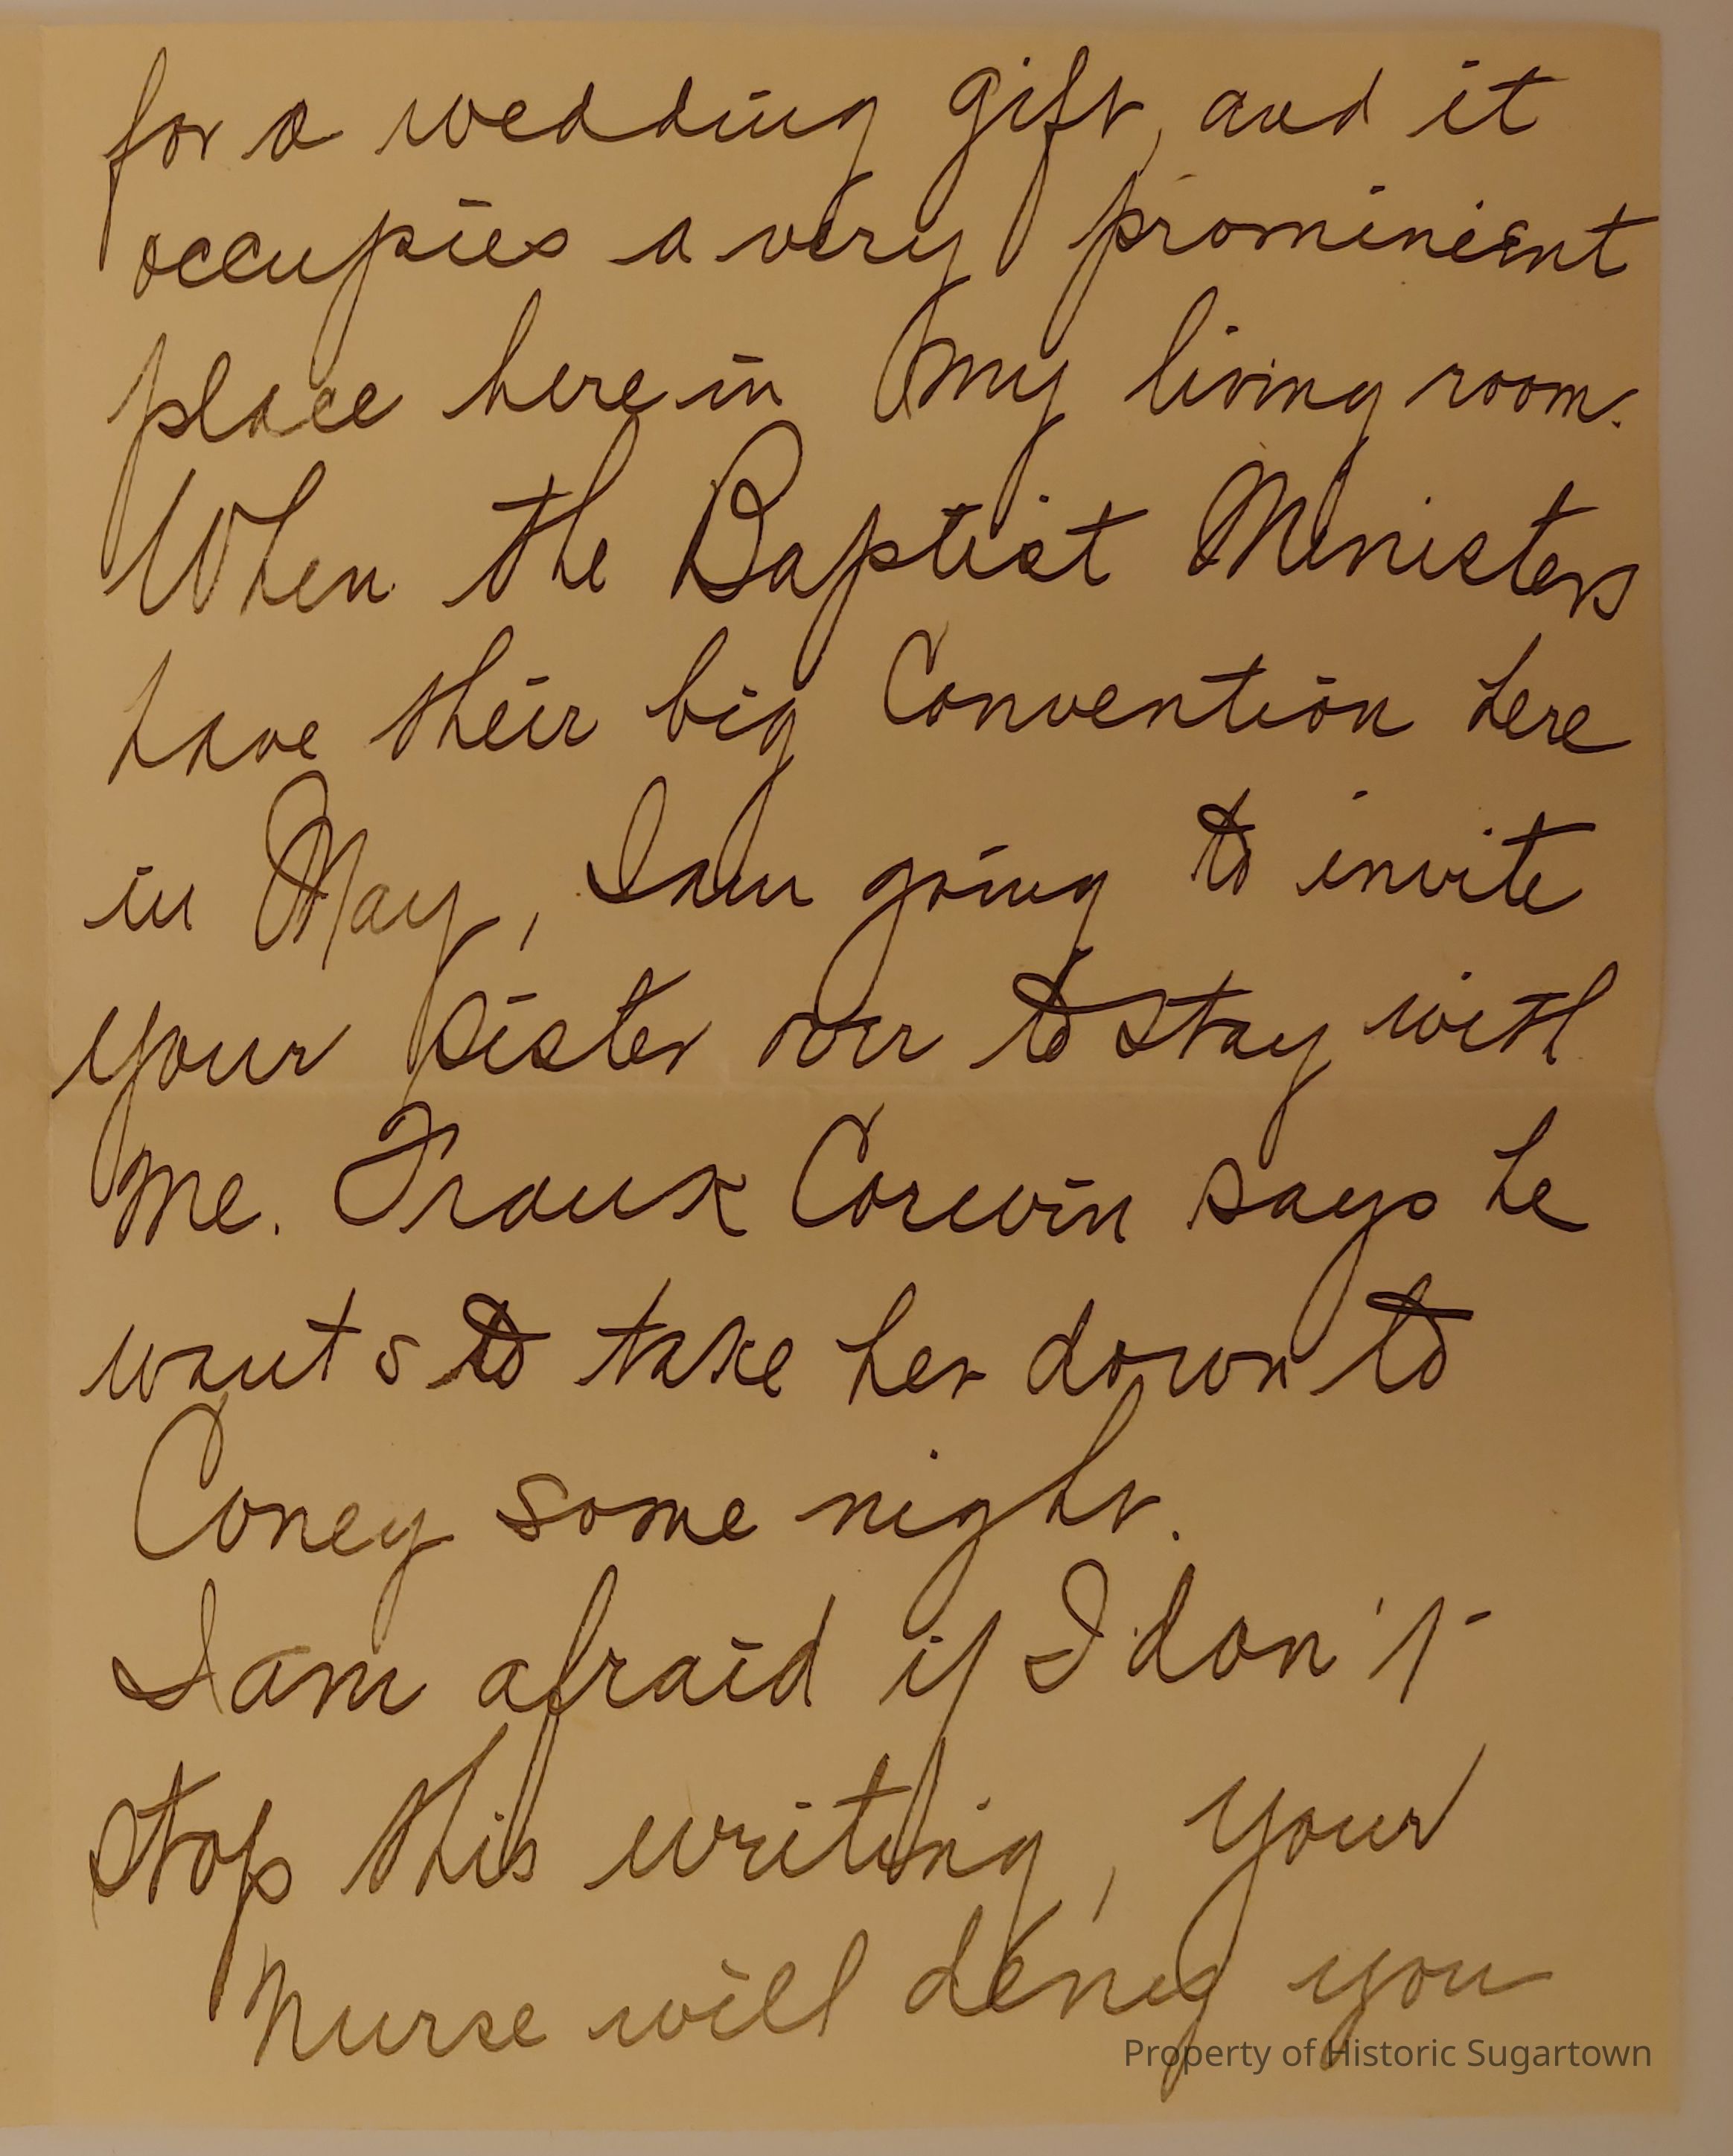 for a wedding gift, and it
occupies a very prominient
place here in my living room.
When the Baptist Ministers
have their big Convention here
in May, I am going to invite
your sister over to stay with
me. Frank Corwin says he
wants to take her down to
Coney some night.
I am afraid if I don't
stop this writing, your
nurse will deny you
Property of Historic Sugartown